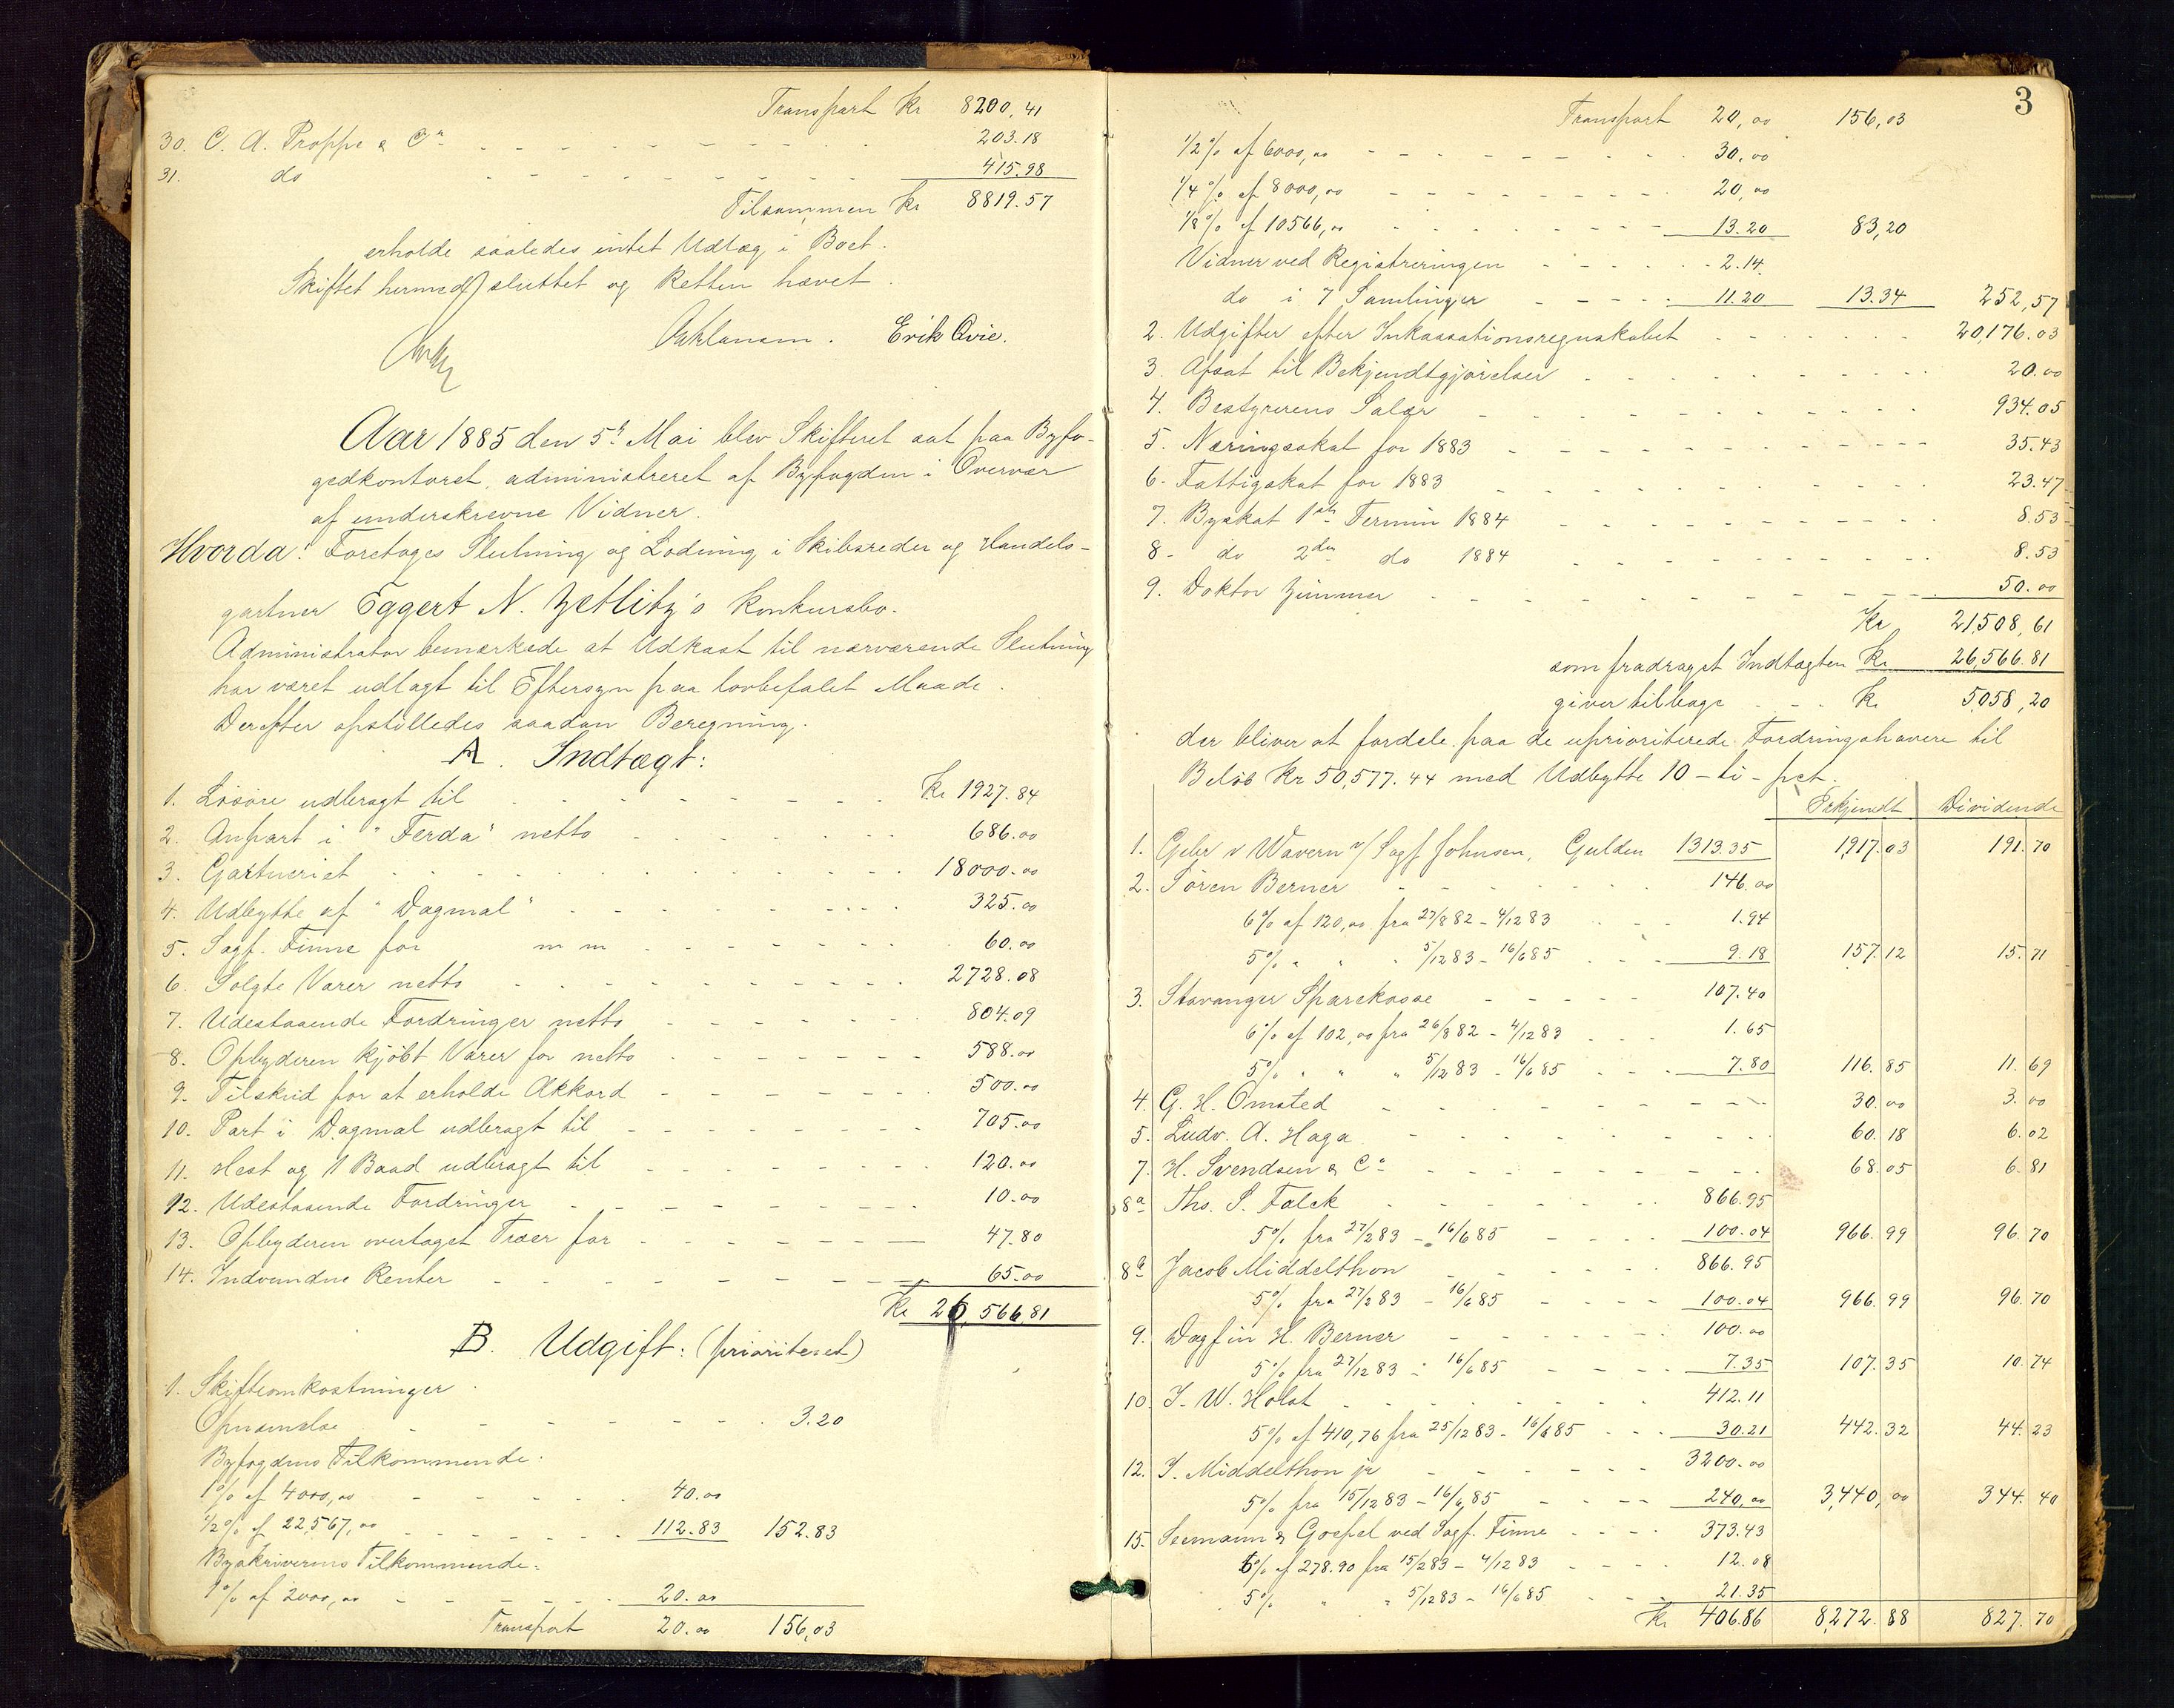 Transport Kr 8200,41
30. C. A. Proppe & Co - - - 203.18
31. do - - - 415.98
Tilsammen Kr 8819.57
erholde saaledes intet Udlæg i Boet.
Skiftet hermed sluttet og Retten hævet.
Erik Qvie.
Aar 1885 den 5te Mai blev Skifteret sat paa Byfo-
gedkontoret, administreret af Byfogden i Overvær
af underskrevne Vidner.
Hvorda: Foretoges Slutning og Lodning i Skibsreder og Handels-
gartner Eggert N. Zetlitz's Konkursbo.
Administrator bemærkede at Udkast til nærværende Slutning
har været udlagt til Eftersyn paa lovbefalet Maade.
Derefter opstilledes saadan Beregning.
A. Indtægt:
1. Løsøre udbragt til - - - Kr 1927.84
2. Anpart i "Ferda" netto - - - 686.00
3. Gartneriet - - - 18000.00
4. Udbytte af "Dagmal" - - - 325.00
5. Sagf. Finne for m m - - - 60.00
6. Solgte Varer netto - - - 2728.08
7. Udestaaende Fordringer netto - - - 804.09
8. Opbyderen kjøbt Varer for netto - - - 588.00
9. Tilskud for at erholde Akkord - - - 500.00
10. Part i Dagmal udbragt til - - - 705.00
11. Hest og 1 Baad udbragt til - - - 120.00
12. Udestaaende Fordringer - - - 10.00
13. Opbyderen overtaget Træer for - - - 47.80
14. Indvundne Renter - - - 65.00
Kr 26,566.81
B. Udgift: (prioriteret)
1. Skifteomkostninger
Opnævnelse - - - 3.20
Byfogdens Tilkommende:
1% af 4000,00 - - - 40.00
1/2% af 22,567,00 - - - 112.83 152.83
Byskriverens Tilkommende:
1% af 2000,00 - - - 20.00
Transport 20.00 156,03
3
Transport 20,00 156,03
1/2% af 6000,00 - - - 30,00
1/4% af 8000,00 - - - 20,00
1/8% af 10566,00 - - - 13.20 83,20
Vidner ved Registreringen - - - 2.14
do i 7 Samlinger - - - 11.20 13.34 252,57
2. Udgifter efter Inkassationsregnskabet - - - 20,176.03
3. Afsat til Bekjendtgjørelser - - - 20.00
4. Bestyrerens Salær - - - 934.05
5. Næringsskat for 1883 - - - 35.43
6. Fattigskat for 1883 - - - 23.47
7. Byskat 1ste Termin 1884 - - - 8.53
8. do 2den do 1884 - - - 8.53
9. Doktor Zimmer - - - 50.00
Kr 21,508,61
som fradraget Indtægten Kr 26,566.81
giver tilbage - - - Kr 5,058,20
der bliver at fordele paa de uprioriterede Fordringshavere til
Beløb Kr 50,577.44 med Udbytte 10 - ti - pct.
Erkjendt Dividende
1. Gebr v Wavern v/ Sagf Johnsen, Gulden 1313.35 1,917.03 191.70
2. Søren Berner - - - 146.00
6% af 120,00 fra 27/8 82 - 4/12 83 - - - 1.94
5% " " " 5/12 83 - 16/6 85 - - - 9.18 157.12 15.71
3. Stavanger Sparekasse - - - 107.40
6% af 102,00 fra 26/8 82 - 4/12 83 - - - 1.65
5% " " " 5/12 83 - 16/6 85 - - - 7.80 116.85 11.69
4. G. H. Omsted - - - 30.00 3.00
5. Ludv. A. Haga - - - 60.18 6.02
7. H. Svendsen & Co - - - 68.05 6.81
8a Ths. S. Falck - - - 866.95
5% fra 27/2 83 - 16/6 85 - - - 100.04 966.99 96.70
8b Jacob Middelthon - - - 866.95
5% fra 27/2 83 - 16/6 85 - - - 100.04 966.99 96.70
9. Dagfin H. Berner - - - 100.00
5% fra 27/12 83 - 16/6 85 - - - 7.35 107.35 10.74
10. I. W. Holst - - - 412.11
5% af 410,76 fra 25/12 83 - 16/6 85 - - - 30.21 442.32 44.23
12. I. Middelthon jr - - - 3200.00
5% fra 15/12 83 - 16/6 85 - - - 240,00 3,440,00 344.40
15. Seemann & Goepel ved Sagf. Finne - - - 373.43
6% af 278.90 fra 15/2 83 - 4/12 83 - - - 12.08
5% " " 5/12 83 - 16/6 85 - - - 21.35
Kr 406.86 8,272.88 827.70